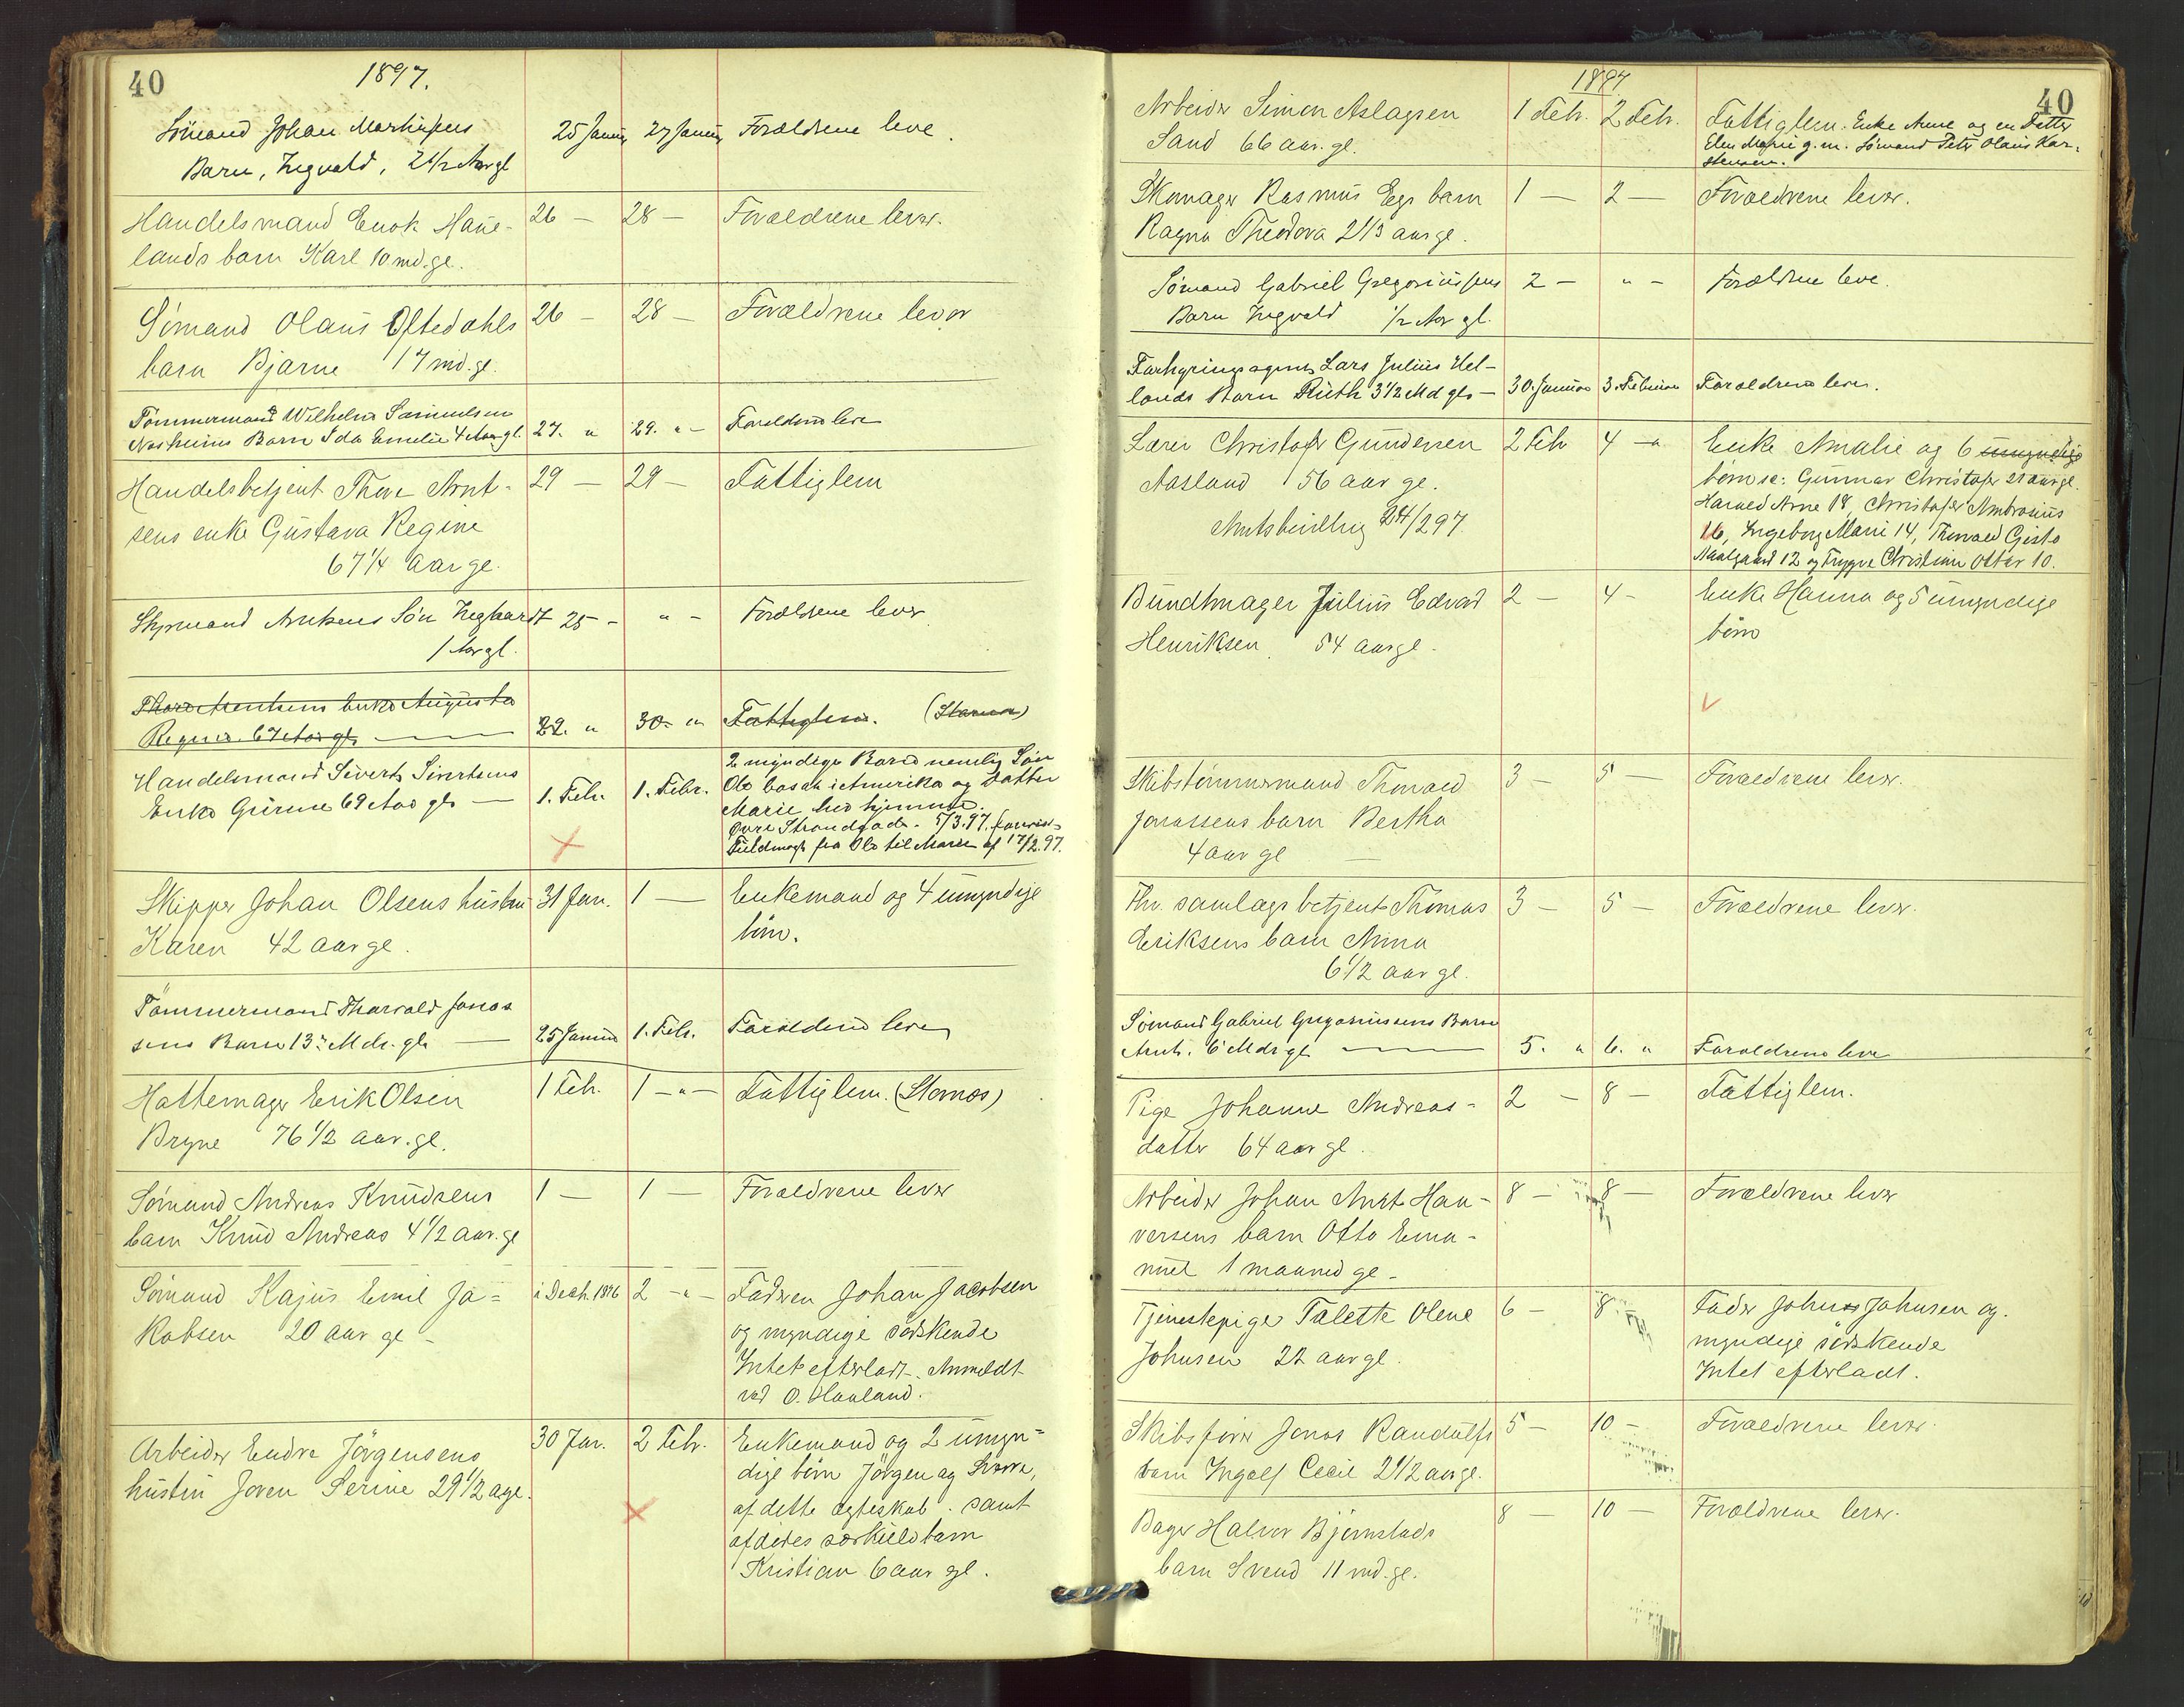 40
1897.
Sömand Johan Martinsens 25 Januar 27 Januar Forældrene leve.
Barn, Ingvald, 2 1/2 Aar gl
Handelsmand Enok Haue- 26 — 28 — Forældrene lever.
lands barn Karl 10 md. gl.
Sömand Olaus Oftedahls 26 — 28 — Forældrene lever
barn Bjarne 17 md. gl.
Tömmermand Wilhelm Samuelsen
Barn Ida Emelie 4 Aar gl. 27. " 29. " — Forældrene leve
Handelsbetjent Thore Arnt- 29 — 29 — Fattiglem
sens enke Gustava Regine
67 1/4 aar gl.
Styrmand Søn Inghardt 25 — " — Forældrene lever
1 Aar gl.
Thore Arentsens Enke Augusta
Regine 67 Aar gl. — 29. " 30. " Fattiglem. (Starnes)
Handelsmand Siverts Sivertsens 2 myndige Børn nemlig Søn
Enke Gurine 69 Aar gl — 1. Febr. 1. Febr. Ole bosat i Amerika og Datter
Marie her hjemme.
Øvre Strandgade. 5/3.97.
Fuldmagt fra Ole til Marie af 17/2.97.
Skipper Johan Olsens hustru 31 Jan. 1 — Enkemand og 4 umyndige
Karen 42 aar gl. børn.
Tömmermand Tharvald Jonas
sens Barn 13 Mdr. gl. — 25 Januar 1. Febr. Forældrene leve
Hattemager Erik Olsen 1 Feb. 1 — " — Fattiglem. (Starnes)
Bryne 76 1/2 aar. gl.
Sömand Andreas Knudsens 1 — 1 — Forældrene lever
barn Knud Andreas 4 1/2 aar. gl
Sömand Kajus Emil Ja= i Decb. 1896 2 — " — Faderen Johan Jacobsen
kobsen 20 aar gl — og myndige södskende
Intet efterladt. Anmeldt
ved O. Haaland.
Arbeider Endre Jörgensens 30 Jan. 2 Feb. Enkemand og 2 umyn=
hustru Joren Serine 29 1/2 a.gl. dige börn Jörgen og Sverre,
af dette ægteskab. samt
afdødes særkuldbarn
Kristian 6 aar gl.
40
1897
Arbeider Simon Aslagsen 1 Feb. 2 Feb. Fattiglem. Enke Anne og en Datter
Sand 66 aar. gl. Elen Marie g.m. Sømand Peter Olaus Kar-
stensen.
Skomager Rasmus Eges barn 1 — 2 — Forældrene lever.
Ragna Theodora 2 1/3 aar gl.
Sömand Gabriel Gregoriussens 2 — " — Forældrene leve.
Barn Ingvald 1/2 Aar gl.
Forhyringsagent Lars Julius Hel-
lands Barn Ruth 3 1/2 Md gl. — 30. Januar 3. Februar Forældrene lever.
Lærer Christofer Gundersen 2 Feb 4 — " Enke Amalie og 6 umyndige
Aasland 56 aar gl. børn se: Gunnar Christofer 21 aar gl.
Amtsbevilling 24/2 97. Harald Arne 18, Christofer Ambrosius
16, Ingeborg Marie 14, Thorvald
12 og Trygve Christian Ottar 10.
Bundtmager Julius Edvard 2 — 4 — Enke Hanna og 5 umyndige
Henriksen. 54 aar gl. børn
Skibstömmermand Thorvald 3 — 5 — Forældrene lever.
Jonassens barn Bertha
4 aar gl —
Thv. samlags betjent Thomas 3 — 5 — Forældrene lever.
Eriksens barn Anna
6 1/2 aar gl.
Sömand Gabriel Gregoriussens Barn
Arnt. 6 Mdr gl. — 5. " 6. " Forældrene leve
Pige Johanne Andreas- 2 — 8 — Fattiglem.
datter 64 aar gl.
Arbeider Johan Arnt Han- 8 — 8 — Forældrene lever
versens barn Otto Ema-
nuel 1 maaned gl.
Tjenestepige Talette Olene 6 — 8 — Fader Johnsen og
Johnsen 22 aar gl. myndige södskende
Intet efterladt.
Skibsförer Jonas Randulfs 5 — 10 — Forældrene lever.
barn Ingolf Cecil 2 1/2 aar gl.
Bager Halvor Bjørnstads 8 — 10 — Forældrene lever.
barn Svend 11 md. gl.